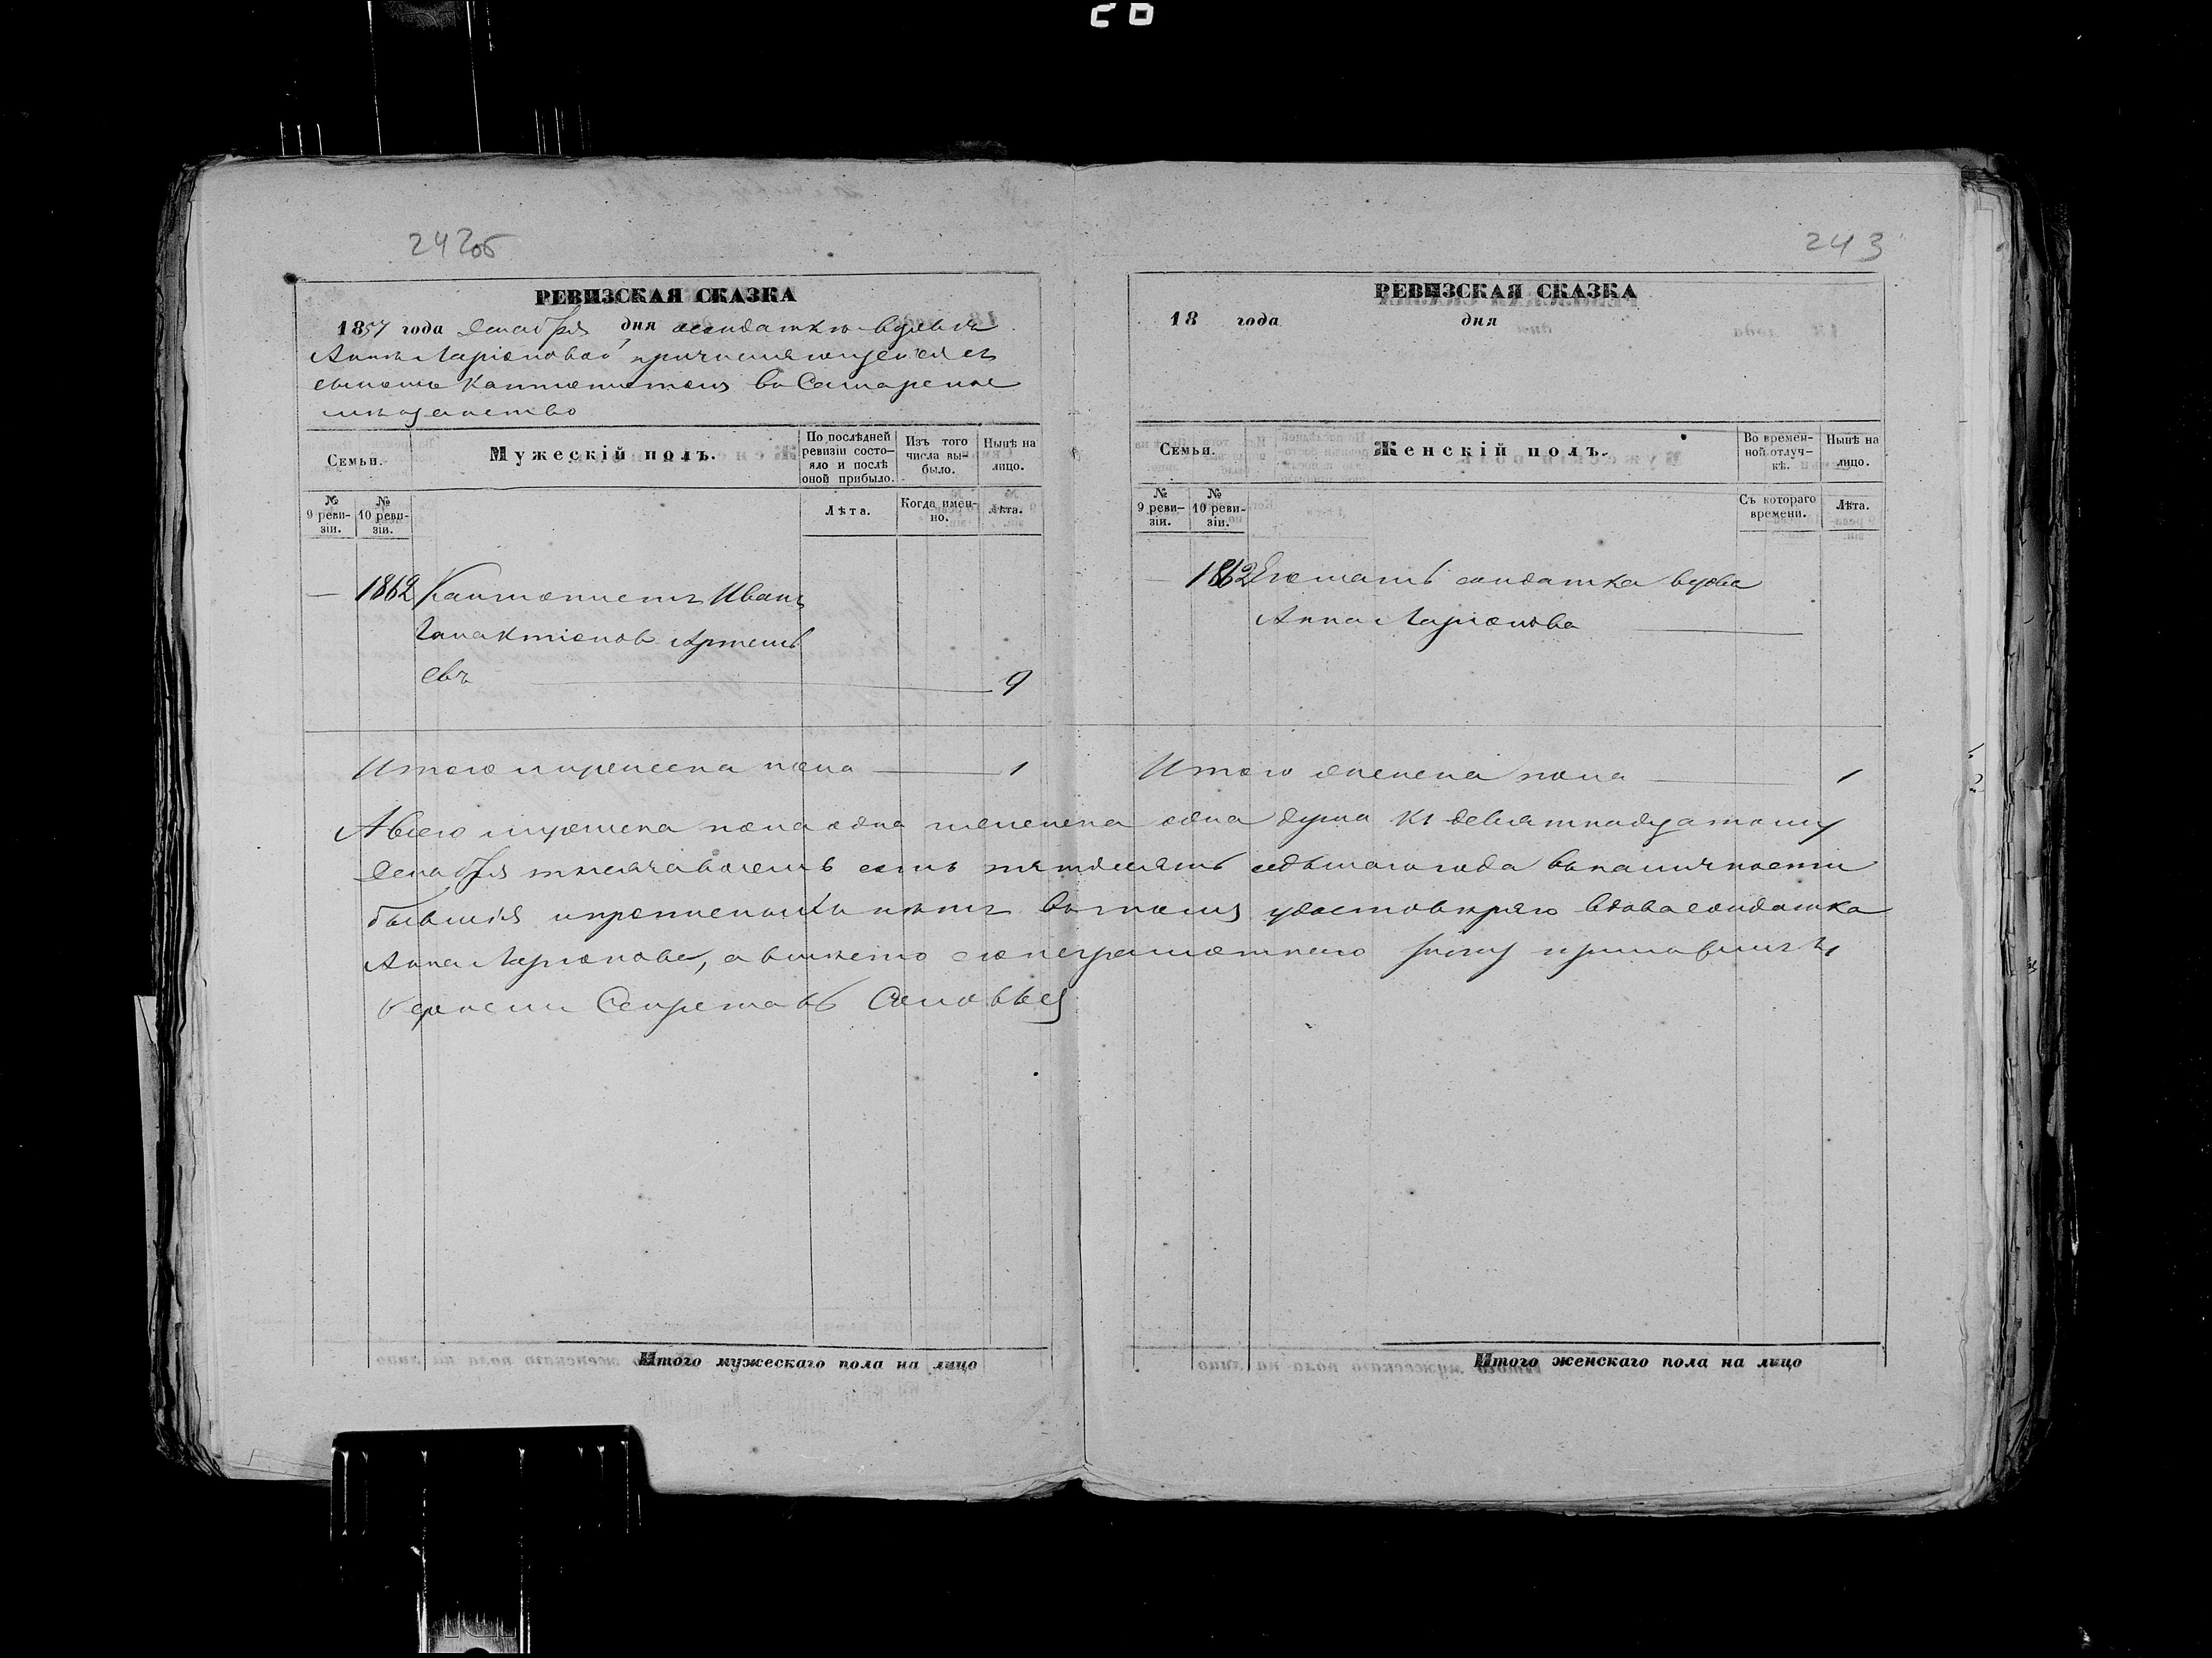 20
242об
РЕВИЗСКАЯ СКАЗКА
1857 года Декабря дня о солдатке вдове
Анне Ларіоновой, причисляющейся съ
сыномъ Кантонистомъ въ Самарское
мещанство
Семьи.
Мужескій полъ.
По послѣдней ревизіи состояло и послѣ оной прибыло.
Изъ того числа выбыло.
Нынѣ на лицо.
№ 9 ревизіи.
№ 10 ревизіи.
Лѣта.
Когда именно.
Лѣта.
— 1862 Кантонистъ Иванъ
Галактіоновъ Артемь
евъ — 9
Итого мужеска пола — 1
243
РЕВИЗСКАЯ СКАЗКА
18 года дня
Семьи.
Женскій полъ.
Во временной отлучкѣ.
Нынѣ на лицо.
№ 9 ревизіи.
№ 10 ревизіи.
Съ котораго времени.
Лѣта.
— 1862 Его мать солдатка вдова
Анна Ларіонова —
Итого женска пола — 1
А всего мужеска пола одна женска одна душа къ девятнадцатому
Декабря тысяча восемь сотъ пятьдесятъ седьмаго года въ наличности
бывшія и пропущенныхъ нетъ въ томъ удостоверяю вдова солдатка
Анна Ларіонова, а вместо ея неграмотной руку приложилъ
Соловьев
Итого мужескаго пола на лицо
Итого женскаго пола на лицо